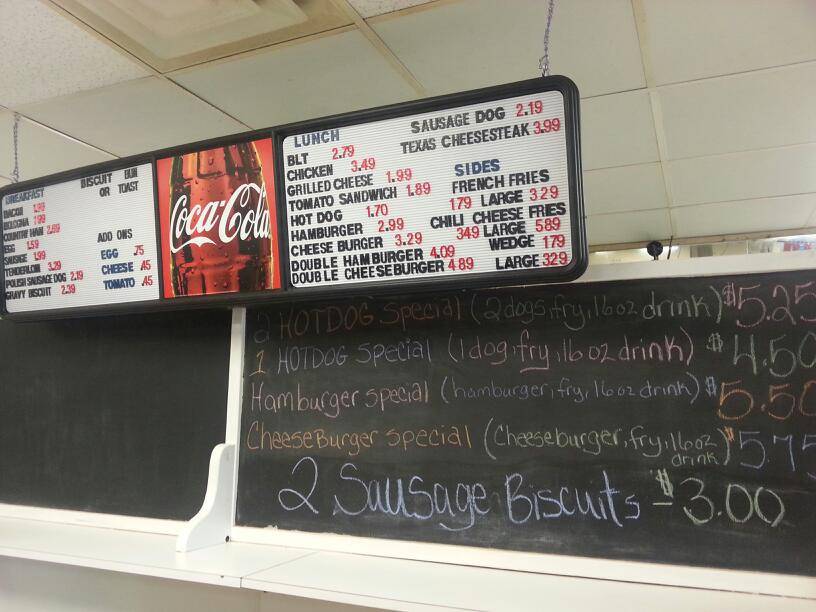 BREAKFAST
BISCUIT BUN
OR TOAST
BACON 1.99
BOLOGNA 1.99
COUNTRY HAM 2.69
EGG 1.59
SAUSAGE 1.99
TENDERLOIN 3.29
POLISH SAUSAGE DOG 2.19
GRAVY BISCUIT 2.39
ADD ONS
EGG .75
CHEESE .45
TOMATO .45
Coca-Cola
LUNCH
BLT 2.79
CHICKEN 3.49
GRILLED CHEESE 1.99
TOMATO SANDWICH 1.89
HOT DOG 1.70
HAMBURGER 2.99
CHEESE BURGER 3.29
DOUBLE HAMBURGER 4.09
DOUBLE CHEESEBURGER 4.89
SAUSAGE DOG 2.19
TEXAS CHEESESTEAK 3.99
SIDES
FRENCH FRIES
179 LARGE 3.29
CHILI CHEESE FRIES
349 LARGE 5.89
WEDGE 179
LARGE 3.29
2 HOTDOG Special (2dogs, fry, 16oz drink) $5.25
1 HOTDOG Special (1dog, fry, 16 oz drink) $4.50
Hamburger special (hamburger, fry, 16oz drink) $5.50
CheeseBurger special (Cheeseburger, fry, 16oz drink) $5.75
2 Sausage Biscuits - $3.00